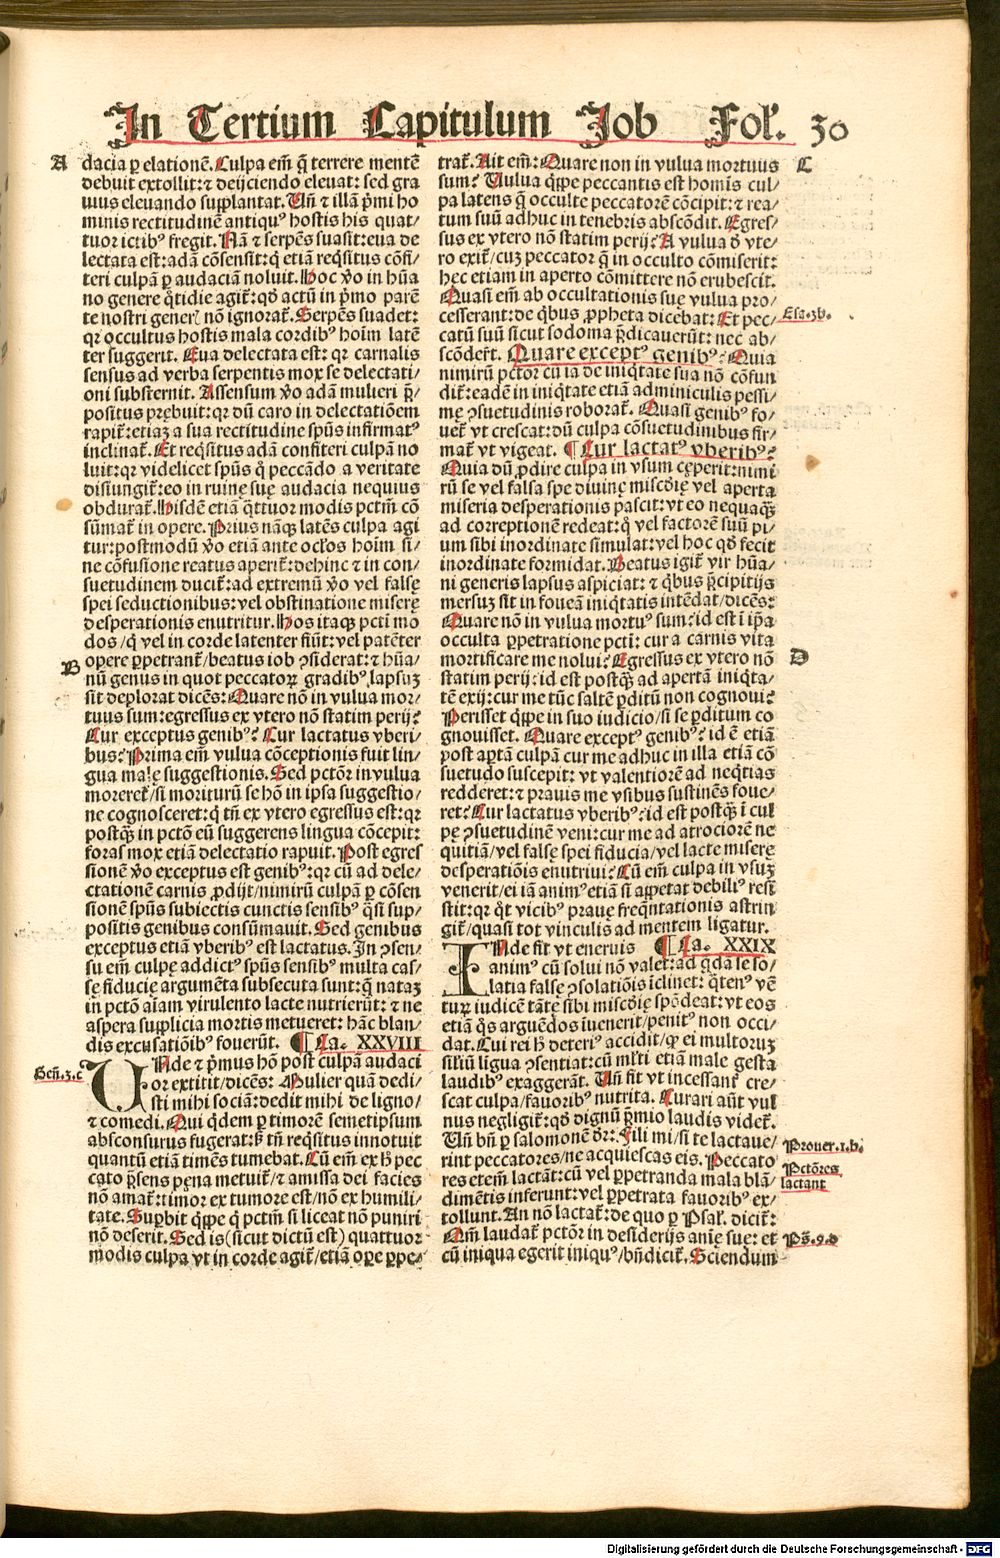 In Tertium Capitulum Job Fol'. 30
A
dacia ꝑ elationē. Culpa em̄ q̄ terrere mentē
debuit extollit: ⁊ deijciendo eleuat: sed gra
uius eleuando supplantat. Un̄ ⁊ illā pͥmi ho
minis rectitudinē antiquꝰ hostis his quat/
tuor ictibꝰ fregit. Nā ⁊ serpēs suasit: eua de
lectata est: adā cōsensit: q̄ etiā reqͥsitus cōfi/
teri culpā ꝑ audaciā noluit. Hoc v̄o in hūa
no genere qͦtidie agit̄: qd̄ actū in pͥmo parē
te nostri generꝭ nō ignorat̄. Serpēs suadet:
qꝛ occultus hostis mala cordibꝰ hoīm latē
ter suggerit. Eua delectata est: qꝛ carnalis
sensus ad verba serpentis mox se delectati/
oni substernit. Assensum v̄o adā mulieri p̄/
positus prębuit: qꝛ dū caro in delectatiōem
rapit̄: etiaꝫ a sua rectitudine spūs infirmatꝰ
inclinat̄. Et reqͥsitus adā confiteri culpā no
luit: qꝛ videlicet spūs qͦ peccādo a veritate
disiungit̄: eo in ruinę suę audacia nequius
obdurat̄. Hisdē etiā qͣttuor modis pctm̄ cō
sūmat̄ in opere. Prius nāqꝫ latēs culpa agi
tur: postmodū v̄o etiā ante oc̄los hoīm si/
ne cōfusione reatus aperit̄: dehinc ⁊ in con/
suetudinem ducit̄: ad extremū v̄o vel falsę
spei seductionibus: vel obstinatione miserę
desperationis enutritur. Hos itaqꝫ pcti mo
dos/ qͥ vel in corde latenter fiūt: vel patēter
B
opere ꝑpetrant̄/ beatus iob ꝯsiderat: ⁊ hūa/
nū genus in quot peccatoꝝ gradibꝰ lapsuꝫ
sit deplorat dicēs: Quare nō in vulua mor/
tuus sum: egressus ex vtero nō statim perij?
Cur exceptus genibꝰ? Cur lactatus vberi/
bus? Prima em̄ vulua cōceptionis fuit lin/
gua malę suggestionis. Sed pctōr in vulua
moreret̄/ si moriturū se hō in ipsa suggestio/
ne cognosceret: qͥ tn̄ ex vtero egressus est: qꝛ
postqꝫ in pctō eū suggerens lingua cōcepit:
foras mox etiā delectatio rapuit. Post egres
sionē v̄o exceptus est genibꝰ: qꝛ cū ad dele/
ctationē carnis ꝓdijt/ nimirū culpā ꝑ cōsen
sionē spūs subiectis cunctis sensibꝰ qͣsi sup/
positis genibus consūmauit. Sed genibus
exceptus etiā vberibꝰ est lactatus. In ꝯsen/
su em̄ culpę addictꝰ spūs sensibꝰ multa cas/
sę fiducię argumēta subsecuta sunt: q̄ nataꝫ
in pctō aīam virulento lacte nutrierūt: ⁊ ne
aspera supplicia mortis metueret: hāc blan/
dis excusatiōibꝰ fouerūt. ¶ Ca. XXVIII
Gen̄.3.c
Unde ⁊ pͥmus hō post culpā audaci
or extitit/ dicēs: Mulier quā dedi/
sti mihi sociā: dedit mihi de ligno/
⁊ comedi. Qui qͥdem ꝑ timorē semetipsum
absconsurus fugerat: ß tn̄ reqͥsitus innotuit
quantū etiā timēs tumebat. Cū em̄ ex h̄ pec
cato p̄sens pęna metuit̄/ ⁊ amissa dei facies
nō amat̄: timor ex tumore est/ nō ex humili/
tate. Supbit qͥppe qͥ pctm̄ si liceat nō puniri
nō deserit. Sed is (sicut dictū est) quattuor
modis culpa vt in corde agit̄/ etiā oꝑe ꝑpe/
trat̄. Ait em̄: Quare non in vulua mortuus
C
sum? Uulua qͥppe peccantis est homīs cul/
pa latens q̄ occulte peccatorē cōcipit: ⁊ rea/
tum suū adhuc in tenebris abscōdit. Egres/
sus ex vtero nō statim perij? A vulua d̄ vte/
ro exit̄/ cuꝫ peccator q̄ in occulto cōmiserit:
hęc etiam in aperto cōmittere nō erubescit.
Quasi em̄ ab occultationis suę vulua pro/
cesserant: de qͥbus ꝓpheta dicebat: Et pec/
Esa.3b.
catū suū sicut sodoma p̄dicauerūt: nec ab/
scōder̄t. Quare exceptꝰ genibꝰ? Quia
nimirū pctor cū ia de iniqͥtate sua nō cōfun
dit̄: eadē in iniqͥtate etiā adminiculis pessi/
mę ꝯsuetudinis roborat̄. Quasi genibꝰ fo/
uet̄ vt crescat: dū culpa cōsuetudinibus fir/
mat̄ vt vigeat. ¶ Cur lactatꝰ vberibꝰ?
Quia dū ꝓdire culpa in vsum cęperit: nimi
rū se vel falsa spe diuinę miscd̄ię vel aperta
miseria desperationis pascit: vt eo nequaqꝫ
ad correptionē redeat: qͦ vel factorē suū pi/
um sibi inordinate simulat: vel hoc qd̄ fecit
inordinate formidat. Beatus igit̄ vir hūa/
ni generis lapsus aspiciat: ⁊ qͥbus p̄cipitijs
mersuꝫ sit in foueā iniqͥtatis intēdat/ dicēs:
Quare nō in vulua mortuꝰ sum: id est i ip̄a
occulta ꝑpetratione pcti: cur a carnis vita
D
mortificare me nolui? Egressus ex vtero nō
statim perij: id est postqꝫ ad apertā iniqͥta/
tē exij: cur me tūc saltē ꝑditū non cognoui?
Perisset qͥppe in suo iudicio/ si se ꝑditum co
gnouisset. Quare exceptꝰ genibꝰ? id ē etiā
post aꝑtā culpā cur me adhuc in illa etiā cō
suetudo suscepit: vt valentiorē ad neqͥtias
redderet: ⁊ prauis me vsibus sustinēs foue/
ret? Cur lactatus vberibꝰ? id est postqꝫ ī cul
pę ꝯsuetudinē veni: cur me ad atrociorē ne
quitiā/ vel falsę spei fiducia/ vel lacte miserę
desperatiōis enutriui? Cū em̄ culpa in vsuꝫ
venerit/ ei iā animꝰ etiā si appetat debiliꝰ resi
stit: qꝛ qͦt vicibꝰ prauę freqn̄tationis astrin
git̄/ quasi tot vinculis ad mentem ligatur.
Inde fit vt eneruis ¶ Ca. XXIX
animꝰ cū solui nō valet: ad qͣdā se so/
latia falsę ꝯsolatiōis īclinet: qͣtenꝰ vē
turꝝ iudicē tātę sibi miscd̄ię spōdeat: vt eos
etiā qͦs arguēdos īuenerit/ penitꝰ non occi/
dat. Cui rei h̄ deteriꝰ accidit/ qꝙ ei multoruꝫ
sil̄iū līgua ꝯsentiat: cū ml̄ti etiā male gesta
laudibꝰ exaggerāt. Un̄ fit vt incessant̄ cre/
scat culpa/ fauoribꝰ nutrita. Curari aūt vul
nus negligit̄: qd̄ dignū p̄mio laudis videt̄.
Un̄ bn̄ ꝑ salomonē dr̄: Fili mi/ si te lactaue/
Prouer.1.b.
rint peccatores/ ne acquiescas eis. Peccato
Pctōres
res etem̄ lactāt: cū vel ꝑpetranda mala blā/
lactant
dimētis inferunt: vel ꝑpetrata fauoribꝰ ex/
tollunt. An nō lactat̄: de quo ꝑ Psal̄. dicit̄:
Qm̄ laudat̄ pctōr in desiderijs anię suę: et
Ps̄.9.d
cū iniqua egerit iniquꝰ/ bn̄dicit̄. Sciendum
Digitalisierung gefördert durch die Deutsche Forschungsgemeinschaft - DFG